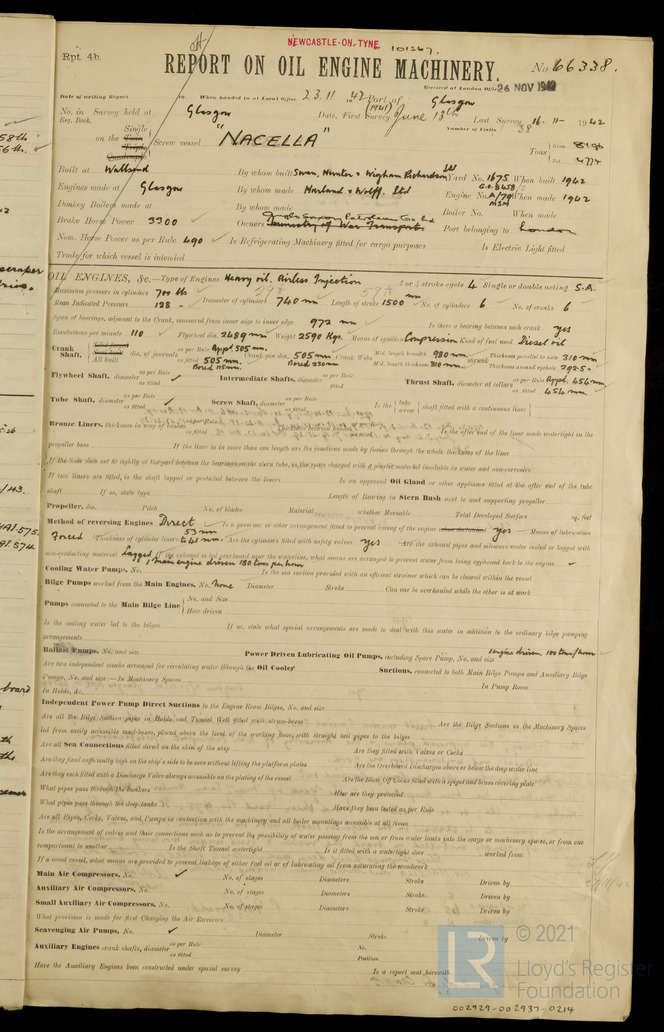 NEWCASTLE-ON-TYNE 101367.
Rpt. 4b.
REPORT ON OIL ENGINE MACHINERY. No. 66338.
Received at London Office 26 NOV 1942
Date of writing Report When handed in at Local Office 23.11 42 Port of Glasgow
No. in Survey held at Glasgow Date, First Survey (1941) June 13th Last Survey 16-11-1942
Reg. Book. Number of Visits 38
Single
on the Screw vessel "NACELLA" Tons
Built at Wallsend By whom built Swan, Hunter & Wigham Richardson Ltd Yard No. 1675 When built 1942
Engines made at Glasgow By whom made Harland & Wolff. Ltd Engine No. When made 1942
Donkey Boilers made at By whom made Boiler No. When made
Brake Horse Power 3300 Owners Anglo Saxon Petroleum Co Ltd Ministry of War Transport Port belonging to London
Nom. Horse Power as per Rule 490 Is Refrigerating Machinery fitted for cargo purposes Is Electric Light fitted
Trade for which vessel is intended
OIL ENGINES, &c.—Type of Engines Heavy oil. Airless Injection 2 or 4 stroke cycle 4 Single or double acting S.A.
Maximum pressure in cylinders 700 lb Diameter of cylinders 740 mm Length of stroke 1500 mm No. of cylinders 6 No. of cranks 6
Mean Indicated Pressure 128
Span of bearings, adjacent to the Crank, measured from inner edge to inner edge 972 mm Is there a bearing between each crank yes
Revolutions per minute 110 Flywheel dia. 2489 mm Weight 2590 Kgs. Means of ignition Compression Kind of fuel used Diesel oil
Crank Shaft, dia. of journals as per Rule Appd 505 mm. as fitted 505 mm. Bored 115 mm. Crank pin dia. 505 mm Bored 230 mm Crank Webs Mid. length breadth 980 mm Mid. length thickness 310 mm Thickness parallel to axis 310 mm Thickness around eyehole 292.5
Flywheel Shaft, diameter as per Rule as fitted Intermediate Shafts, diameter as per Rule as fitted Thrust Shaft, diameter at collars as per Rule Appd. 454 mm as fitted 454 mm
Tube Shaft, diameter as per Rule as fitted Screw Shaft, diameter as per Rule as fitted Is the tube screw shaft fitted with a continuous liner
Bronze Liners, thickness in way of bushes as per Rule as fitted Is the after end of the liner made watertight in the
propeller boss If the liner is in more than one length are the junctions made by fusion through the whole thickness of the liner
If the liner does not fit tightly at the part between the bearings in the stern tube, is the space charged with a plastic material insoluble in water and non-corrosive
If two liners are fitted, is the shaft lapped or protected between the liners Is an approved Oil Gland or other appliance fitted at the after end of the tube
shaft If so, state type Length of Bearing in Stern Bush next to and supporting propeller
Propeller, dia. Pitch No. of blades Material whether Moveable Total Developed Surface sq. feet
Method of reversing Engines Direct Is a governor or other arrangement fitted to prevent racing of the engine yes Means of lubrication
Forced Thickness of cylinder liners 53 mm to 41 mm. Are the cylinders fitted with safety valves yes Are the exhaust pipes and silencers water cooled or lagged with
non-conducting material Lagged If the exhaust is led overboard near the waterline, what means are arranged to prevent water being syphoned back to the engine
Cooling Water Pumps, No. 1, main engine driven 180 tons per hour Is the sea suction provided with an efficient strainer which can be cleared within the vessel
Bilge Pumps worked from the Main Engines, No. None Diameter Stroke Can one be overhauled while the other is at work
Pumps connected to the Main Bilge Line No. and Size
How driven
Is the cooling water led to the bilges If so, state what special arrangements are made to deal with this water in addition to the ordinary bilge pumping
arrangements
Ballast Pumps, No. and size Power Driven Lubricating Oil Pumps, including Spare Pump, No. and size 1 engine driven. 100 tons/hour
Are two independent means arranged for circulating water through the Oil Cooler Suctions, connected to both Main Bilge Pumps and Auxiliary Bilge
Pumps, No. and size:—In Machinery Spaces In Pump Room
In Holds, &c.
Independent Power Pump Direct Suctions to the Engine Room Bilges, No. and size
Are all the Bilge Suction pipes in Holds and Tunnel Well fitted with strum-boxes Are the Bilge Suctions in the Machinery Spaces
led from easily accessible mud-boxes, placed above the level of the working floor, with straight tail pipes to the bilges
Are all Sea Connections fitted direct on the skin of the ship Are they fitted with Valves or Cocks
Are they fixed sufficiently high on the ship's side to be seen without lifting the platform plates Are the Overboard Discharges above or below the deep water line
Are they each fitted with a Discharge Valve always accessible on the plating of the vessel Are the Blow Off Cocks fitted with a spigot and brass covering plate
What pipes pass through the bunkers How are they protected
What pipes pass through the deep tanks Have they been tested as per Rule
Are all Pipes, Cocks, Valves, and Pumps in connection with the machinery and all boiler mountings accessible at all times
Is the arrangement of valves and their connections such as to prevent the possibility of water passing from the sea or from water tanks into the cargo or machinery spaces, or from one
compartment to another Is the Shaft Tunnel watertight Is it fitted with a watertight door worked from
If a wood vessel, what means are provided to prevent leakage of either fuel oil or of lubricating oil from saturating the woodwork
Main Air Compressors, No. No. of stages Diameters Stroke Driven by
Auxiliary Air Compressors, No. No. of stages Diameters Stroke Driven by
Small Auxiliary Air Compressors, No. No. of stages Diameters Stroke Driven by
What provision is made for first Charging the Air Receivers
Scavenging Air Pumps, No. Diameter Stroke Driven by
Auxiliary Engines crank shafts, diameter as per Rule as fitted No. Position
Have the Auxiliary Engines been constructed under special survey Is a report sent herewith
LR © 2021
Lloyd's Register
Foundation
002929-002937-0214